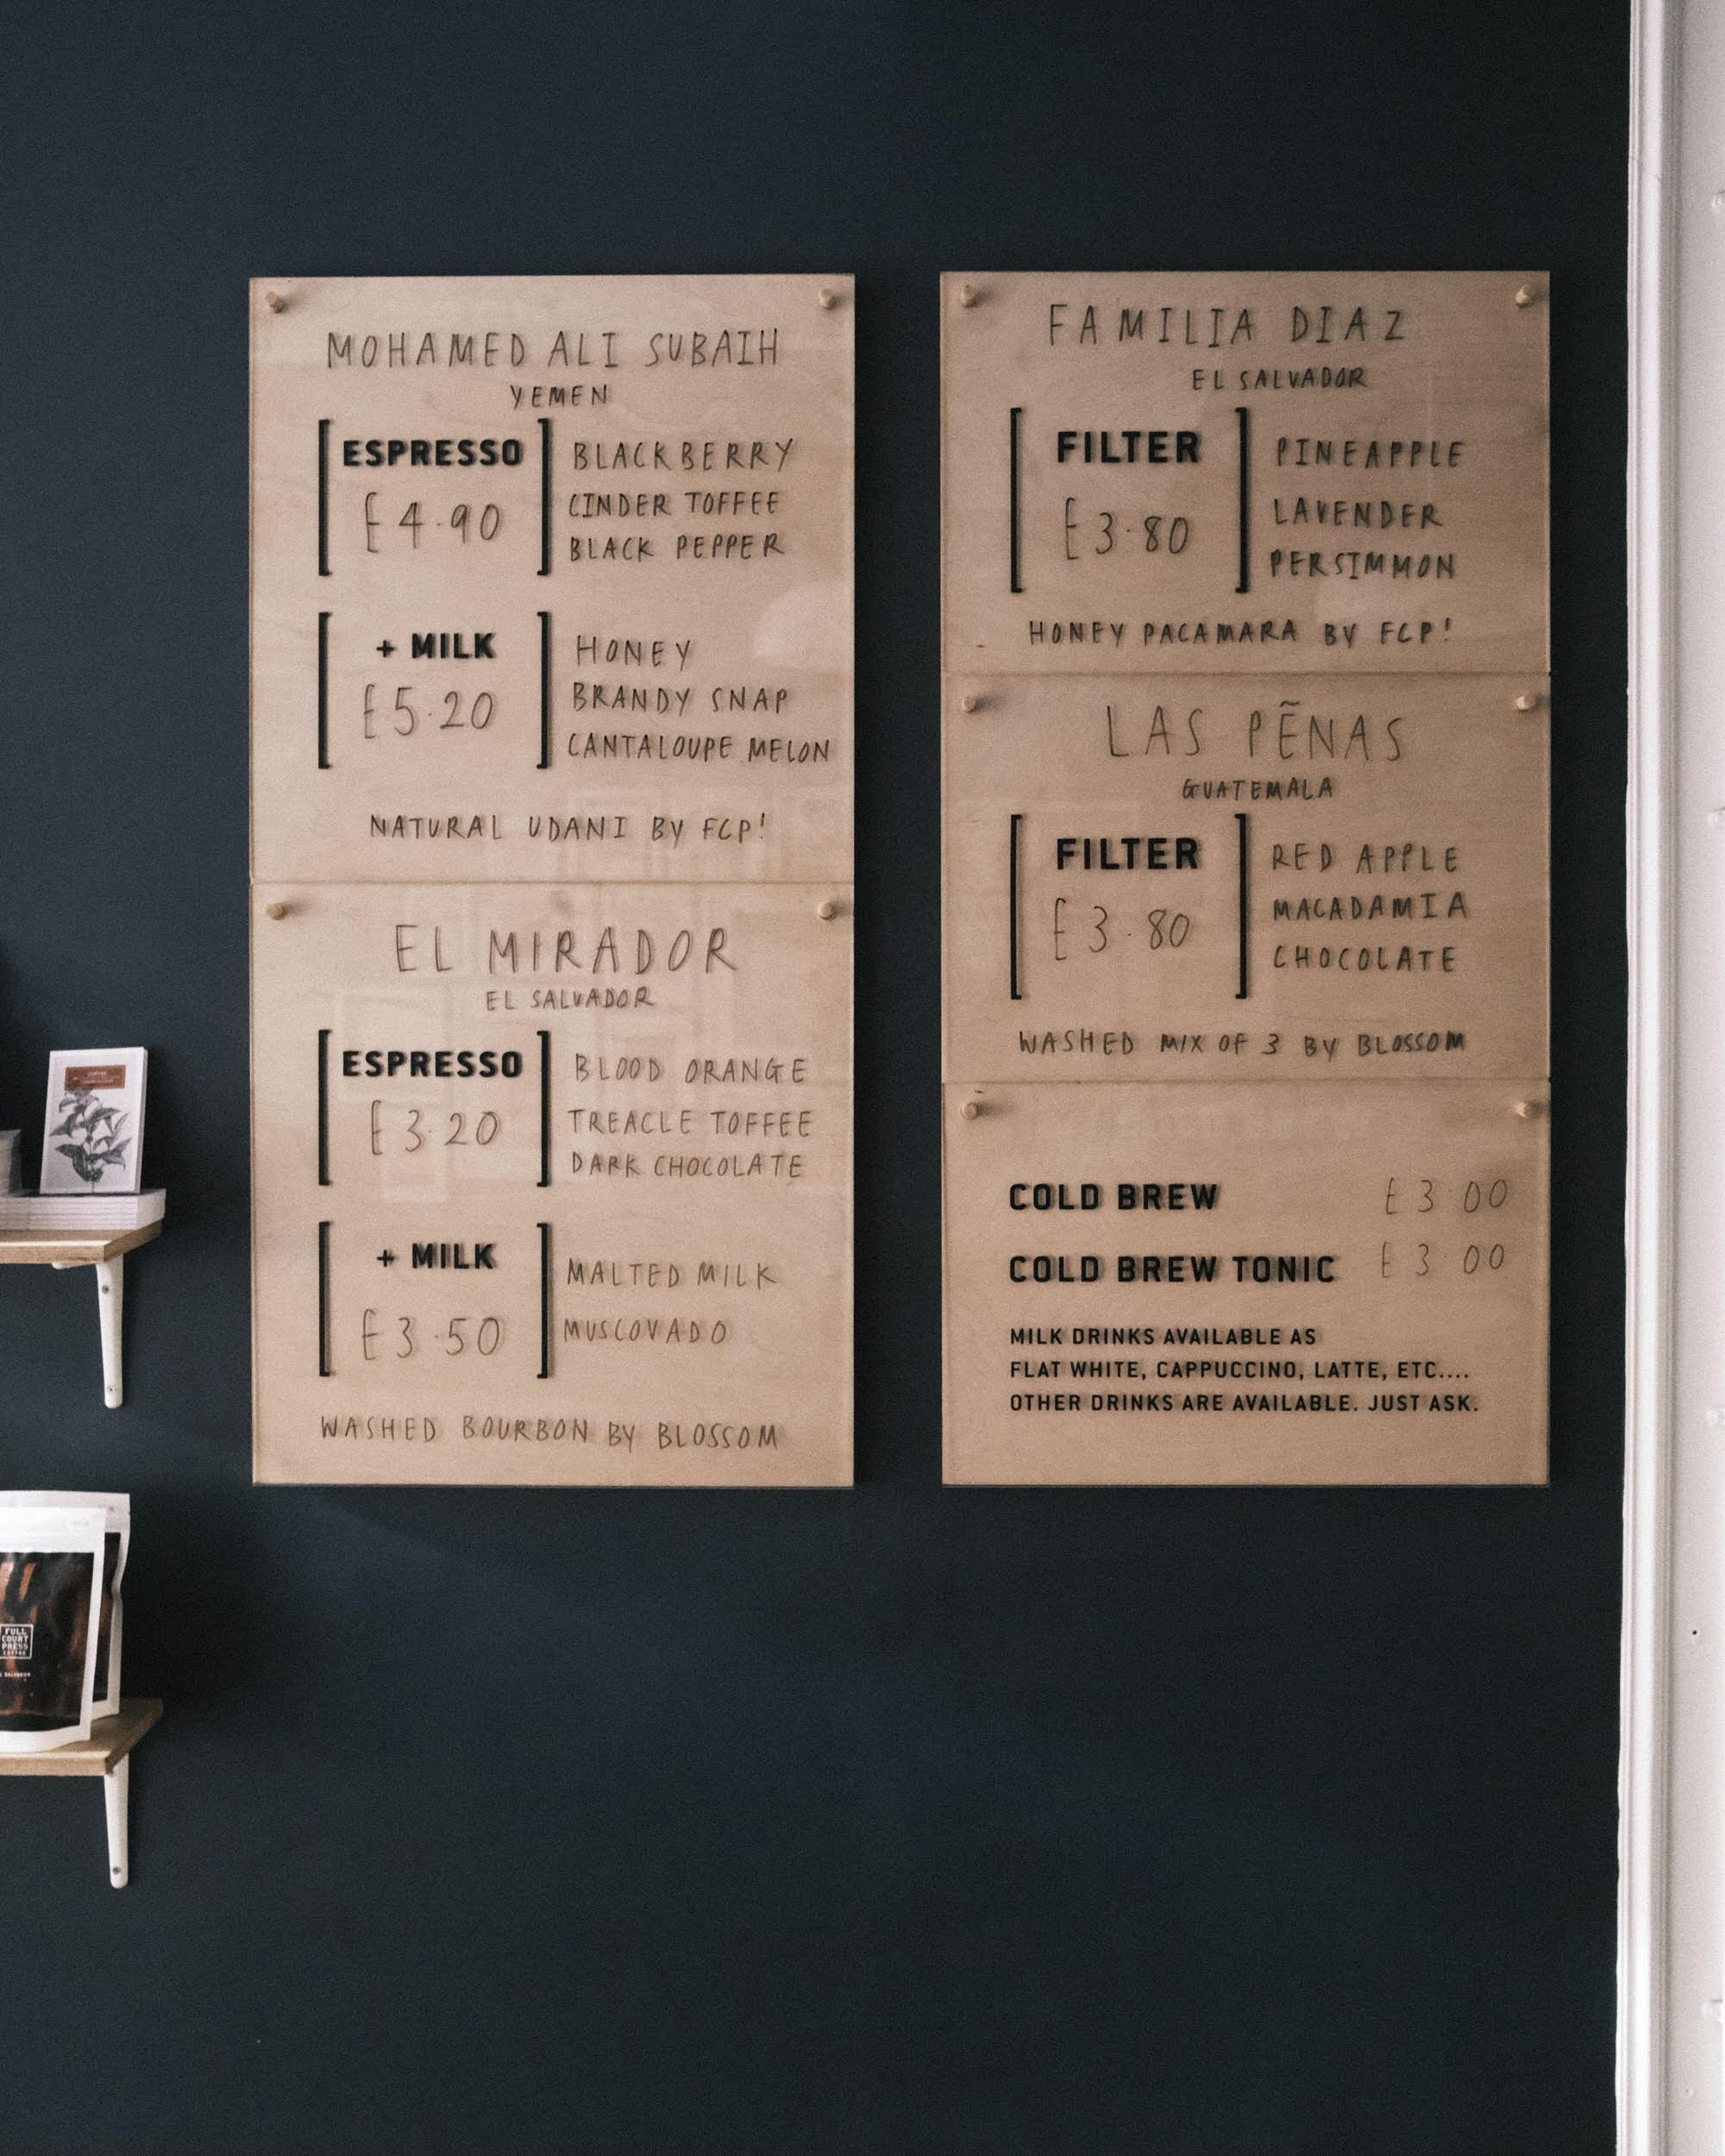 MOHAMED ALI SUBAIH
YEMEN
ESPRESSO
£4.90
BLACKBERRY
CINDER TOFFEE
BLACK PEPPER
+ MILK
£5.20
HONEY
BRANDY SNAP
CANTALOUPE MELON
NATURAL UDANI BY FCP!
EL MIRADOR
EL SALVADOR
ESPRESSO
£3.20
BLOOD ORANGE
TREACLE TOFFEE
DARK CHOCOLATE
+ MILK
£3.50
MALTED MILK
MUSCOVADO
WASHED BOURBON BY BLOSSOM
FAMILIA DIAZ
EL SALVADOR
FILTER
£3.80
PINEAPPLE
LAVENDER
PERSIMMON
HONEY PACAMARA BY FCP!
LAS PẼNAS
GUATEMALA
FILTER
£3.80
RED APPLE
MACADAMIA
CHOCOLATE
WASHED MIX OF 3 BY BLOSSOM
COLD BREW £3.00
COLD BREW TONIC £3.00
MILK DRINKS AVAILABLE AS
FLAT WHITE, CAPPUCCINO, LATTE, ETC....
OTHER DRINKS ARE AVAILABLE. JUST ASK.
FULL
COURT
PRESS
COFFEE